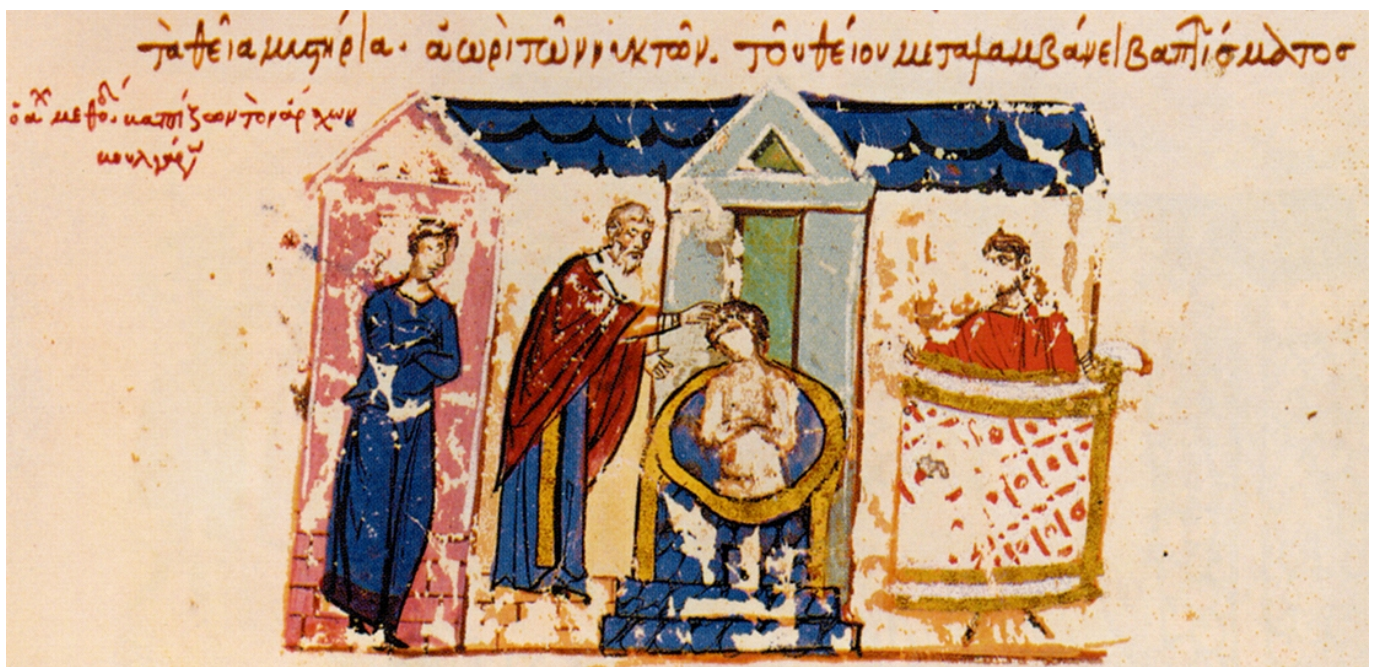 τὰ θεῖα μυστήρια. ἀωρὶ τῶν νυκτῶν. τοῦ θείου μεταλαμβάνει βαπτίσματος
ὁ ἅχ μεθόδι βαπτίζων τὸν ἄρχων
βουλγάρ